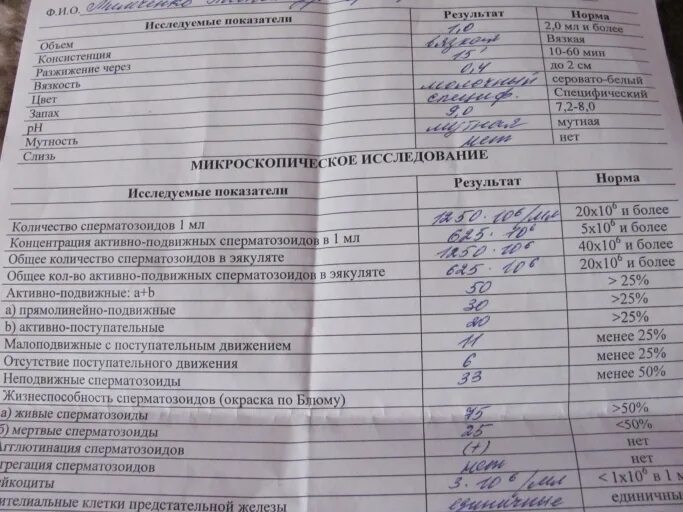 Ф.И.О.
Исследуемые показатели Результат Норма
Объем 1,0 2,0 мл и более
Консистенция вязкая Вязкая
Разжижение через 15' 10-60 мин
Вязкость 0,4 до 2 см
Цвет молочный серовато-белый
Запах специф. Специфический
рН 9,0 7,2-8,0
Мутность мутная мутная
Слизь нет нет
МИКРОСКОПИЧЕСКОЕ ИССЛЕДОВАНИЕ
Исследуемые показатели Результат Норма
Количество сперматозоидов 1 мл 1250·10⁶/мл 20х10⁶ и более
Концентрация активно-подвижных сперматозоидов в 1 мл 625·10⁶ 5х10⁶ и более
Общее количество сперматозоидов в эякуляте 1250·10⁶ 40х10⁶ и более
Общее кол-во активно-подвижных сперматозоидов в эякуляте 625·10⁶ 20х10⁶ и более
Активно-подвижные: a+b 50 > 25%
a) прямолинейно-подвижные 30 >25%
b) активно-поступательные 20 >25%
Малоподвижные с поступательным движением 11 менее 25%
Отсутствие поступательного движения 6 менее 25%
Неподвижные сперматозоиды 33 менее 50%
Жизнеспособность сперматозоидов (окраска по Блюму)
а) живые сперматозоиды 75 >50%
б) мертвые сперматозоиды 25 <50%
Агглютинация сперматозоидов (+) нет
грегация сперматозоидов нет нет
ейкоциты 3·10⁶/мл < 1х10⁶ в 1 м
ителиальные клетки предстательной железы единичные единичны